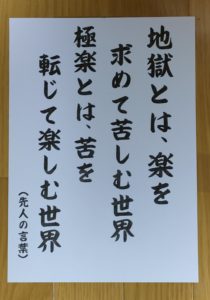 地獄とは、楽を
求めて苦しむ世界
極楽とは、苦を
転じて楽しむ世界
（先人の言葉）